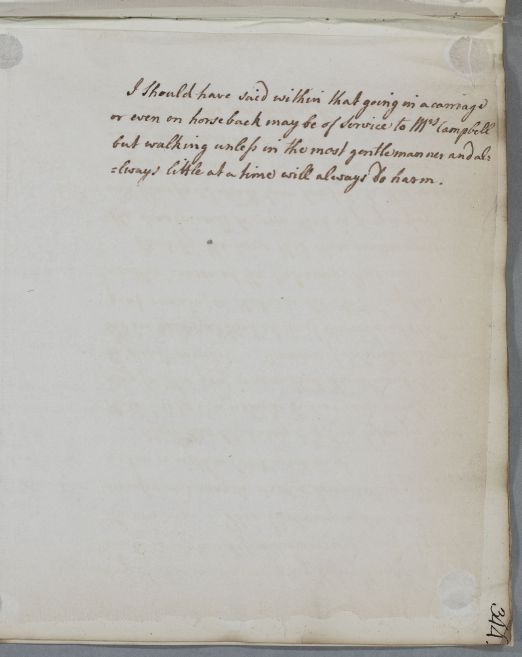 I should have said within that going in a carriage
or even on horseback may be of service to Mrs Campbell
but walking unleſs in the most gentle manner and al:
=lways little at a time will always do harm.
344.